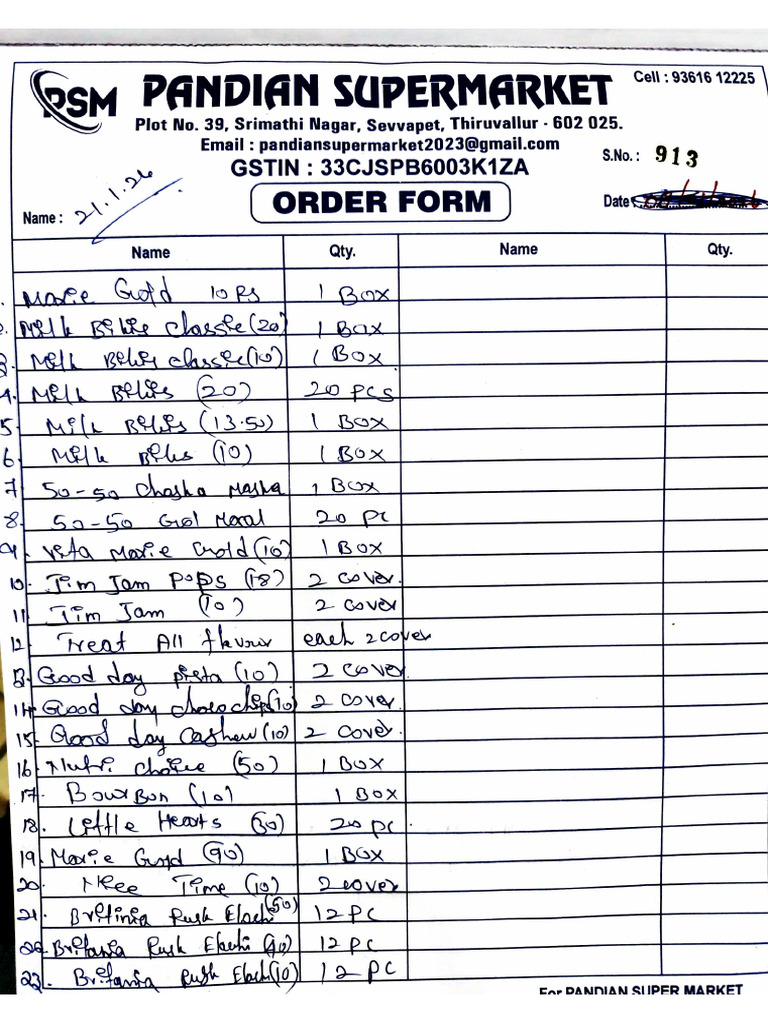 PSM PANDIAN SUPERMARKET Cell : 93616 12225
Plot No. 39, Srimathi Nagar, Sevvapet, Thiruvallur - 602 025.
Email : pandiansupermarket2023@gmail.com
GSTIN : 33CJSPB6003K1ZA S.No. : 913
Name : 21.1.26 ORDER FORM Date :
Name Qty. Name Qty.
Marie Gold 10 Rs 1 Box
Milk Bikis Classic (20) 1 Box
3. Milk Bikis Classic (10) 1 Box
4. Milk Bikis (20) 20 pcs
5 Milk Bikis (13.50) 1 Box
6. Milk Bikis (10) 1 Box
7 50-50 Chaska Maska 1 Box
8. 50-50 20 pc
9. Vita Marie Gold (10) 1 Box
10. Jim Jam Pops (18) 2 cover.
11 Jim Jam (10) 2 cover
12 Treat All flavour each 2 cover
13. Good day pista (10) 2 cover
14. Good day chocochips (10) 2 cover
15. Good day Cashew (10) 2 cover.
16. Nutri choice (50) 1 Box
17. BourBon (10) 1 Box
18. Little Hearts 20 pc.
19. Marie Gold (90) 1 Box
20. Time (10) 2 cover
21. Britinia Rusk Elachi (50) 12 PC
22. Britania Rusk Elachi 12 PC
23. Britania Rusk Elachi (10) 12 PC
For PANDIAN SUPER MARKET